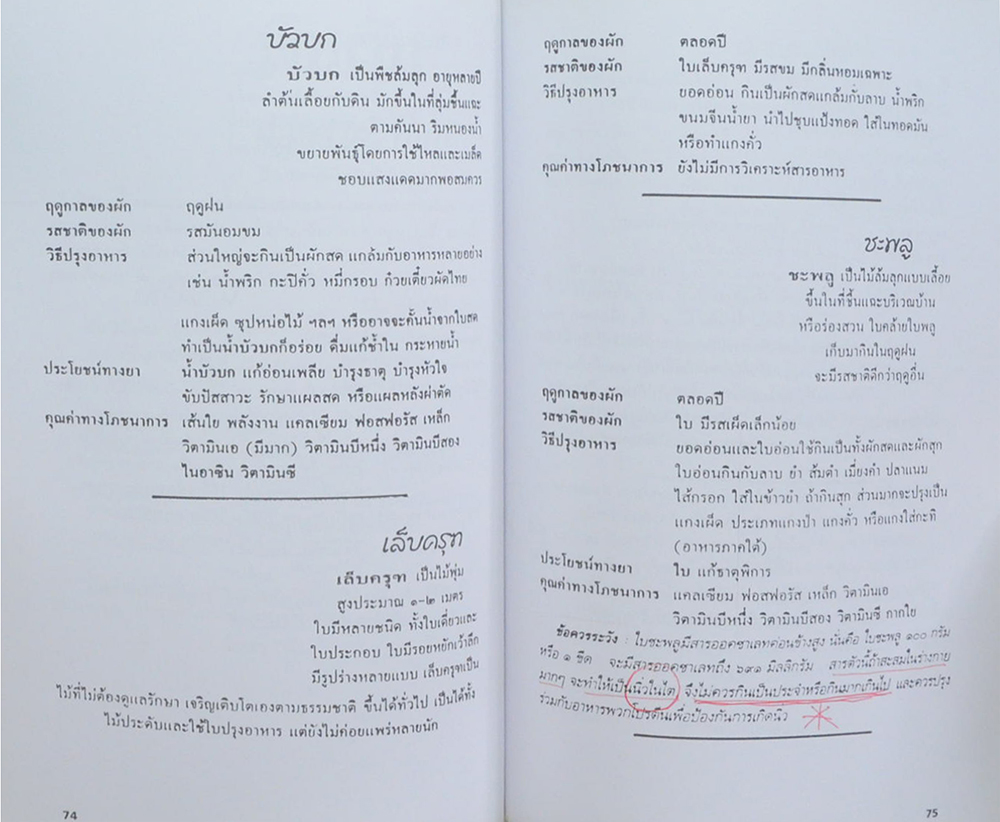 บัวบก
บัวบก เป็นพืชล้มลุก อายุหลายปี
ลำต้นเลื้อยกับดิน มักขึ้นในที่ลุ่มชื้นแฉะ
ตามคันนา ริมหนองน้ำ
ขยายพันธุ์โดยการใช้ไหลและเมล็ด
ชอบแสงแดดมากพอสมควร
ฤดูกาลของผัก ฤดูฝน
รสชาติของผัก รสมันอมขม
วิธีปรุงอาหาร ส่วนใหญ่จะกินเป็นผักสด แกล้มกับอาหารหลายอย่าง
เช่น น้ำพริก กะปิคั่ว หมี่กรอบ ก๋วยเตี๋ยวผัดไทย
แกงเผ็ด ซุปหน่อไม้ ฯลฯ หรืออาจจะคั้นน้ำจากใบสด
ทำเป็นน้ำบัวบกก็อร่อย ดื่มแก้ช้ำใน กระหายน้ำ
ประโยชน์ทางยา น้ำบัวบก แก้อ่อนเพลีย บำรุงธาตุ บำรุงหัวใจ
ขับปัสสาวะ รักษาแผลสด หรือแผลหลังผ่าตัด
คุณค่าทางโภชนาการ เส้นใย พลังงาน แคลเซียม ฟอสฟอรัส เหล็ก
วิตามินเอ (มีมาก) วิตามินบีหนึ่ง วิตามินบีสอง
ไนอาซิน วิตามินซี
เล็บครุฑ
เล็บครุฑ เป็นไม้พุ่ม
สูงประมาณ ๑-๒ เมตร
ใบมีหลายชนิด ทั้งใบเดี่ยวและ
ใบประกอบ ใบมีรอยหยักเว้าลึก
มีรูปร่างหลายแบบ เล็บครุฑเป็น
ไม้ที่ไม่ต้องดูแลรักษา เจริญเติบโตเองตามธรรมชาติ ขึ้นได้ทั่วไป เป็นได้ทั้ง
ไม้ประดับและใช้ใบปรุงอาหาร แต่ยังไม่ค่อยแพร่หลายนัก
74
ฤดูกาลของผัก ตลอดปี
รสชาติของผัก ใบเล็บครุฑ มีรสขม มีกลิ่นหอมเฉพาะ
วิธีปรุงอาหาร ยอดอ่อน กินเป็นผักสดแกล้มกับลาบ น้ำพริก
ขนมจีนน้ำยา นำไปชุบแป้งทอด ใส่ในทอดมัน
หรือทำแกงคั่ว
คุณค่าทางโภชนาการ ยังไม่มีการวิเคราะห์สารอาหาร
ชะพลู
ชะพลู เป็นไม้ล้มลุกแบบเลื้อย
ขึ้นในที่ชื้นแฉะบริเวณบ้าน
หรือร่องสวน ใบคล้ายใบพลู
เก็บมากินในฤดูฝน
จะมีรสชาติดีกว่าฤดูอื่น
ฤดูกาลของผัก ตลอดปี
รสชาติของผัก ใบ มีรสเผ็ดเล็กน้อย
วิธีปรุงอาหาร ยอดอ่อนและใบอ่อนใช้กินเป็นทั้งผักสดและผักสุก
ใบอ่อนกินกับลาบ ยำ ส้มตำ เมี่ยงคำ ปลาแนม
ไส้กรอก ใส่ในข้าวยำ ถ้ากินสุก ส่วนมากจะปรุงเป็น
แกงเผ็ด ประเภทแกงป่า แกงคั่ว หรือแกงใส่กะทิ
(อาหารภาคใต้)
ประโยชน์ทางยา ใบ แก้ธาตุพิการ
คุณค่าทางโภชนาการ แคลเซียม ฟอสฟอรัส เหล็ก วิตามินเอ
วิตามินบีหนึ่ง วิตามินบีสอง วิตามินซี กากใย
ข้อควรระวัง : ใบชะพลูมีสารออคซาเลทค่อนข้างสูง นั่นคือ ใบชะพลู ๑๐๐ กรัม
หรือ ๑ ขีด จะมีสารออคซาเลทถึง ๖๙๑ มิลลิกรัม สารตัวนี้ถ้าสะสมในร่างกาย
มากๆ จะทำให้เป็นนิ่วในไต จึงไม่ควรกินเป็นประจำหรือกินมากเกินไป และควรปรุง
ร่วมกับอาหารพวกโปรตีนเพื่อป้องกันการเกิดนิ่ว
75